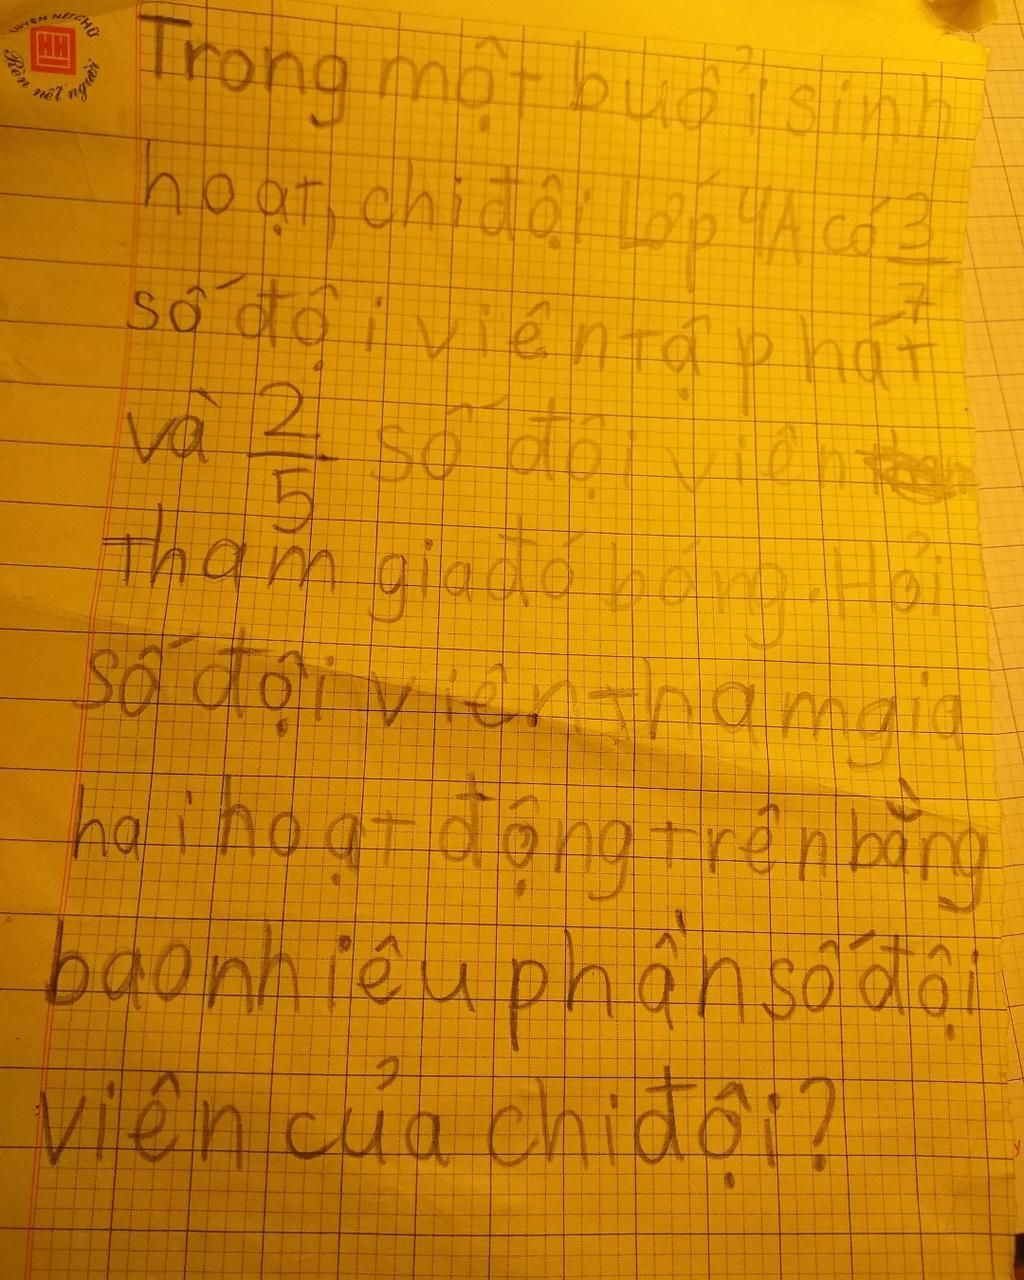 LUYỆN NÉT CHỮ
HH
Rèn nết người
Trong một buổi sinh
hoạt, chi đội Lớp 4A có 3/7
số đội viên tập hát
và 2/5 số đội viên
tham gia đó bóng. Hỏi
số đội viên tham gia
hai hoạt động trên bằng
bao nhiêu phần số đội
viên của chi đội?